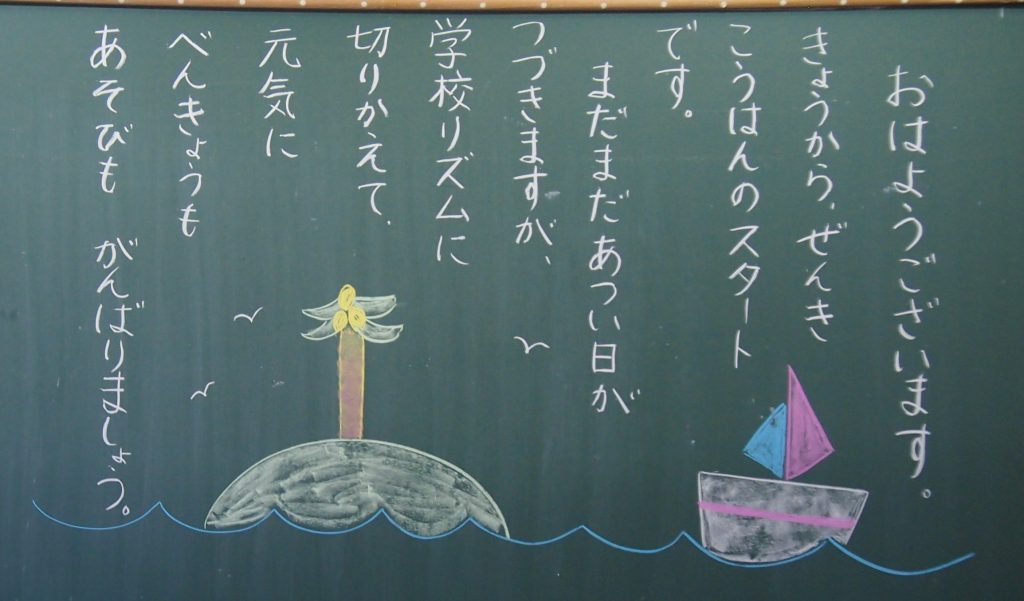 おはようございます。
きょうから、ぜんき
こうはんのスタート
です。
まだまだあつい日が
つづきますが、
学校リズムに
切りかえて、
元気に
べんきょうも
あそびも がんばりましょう。